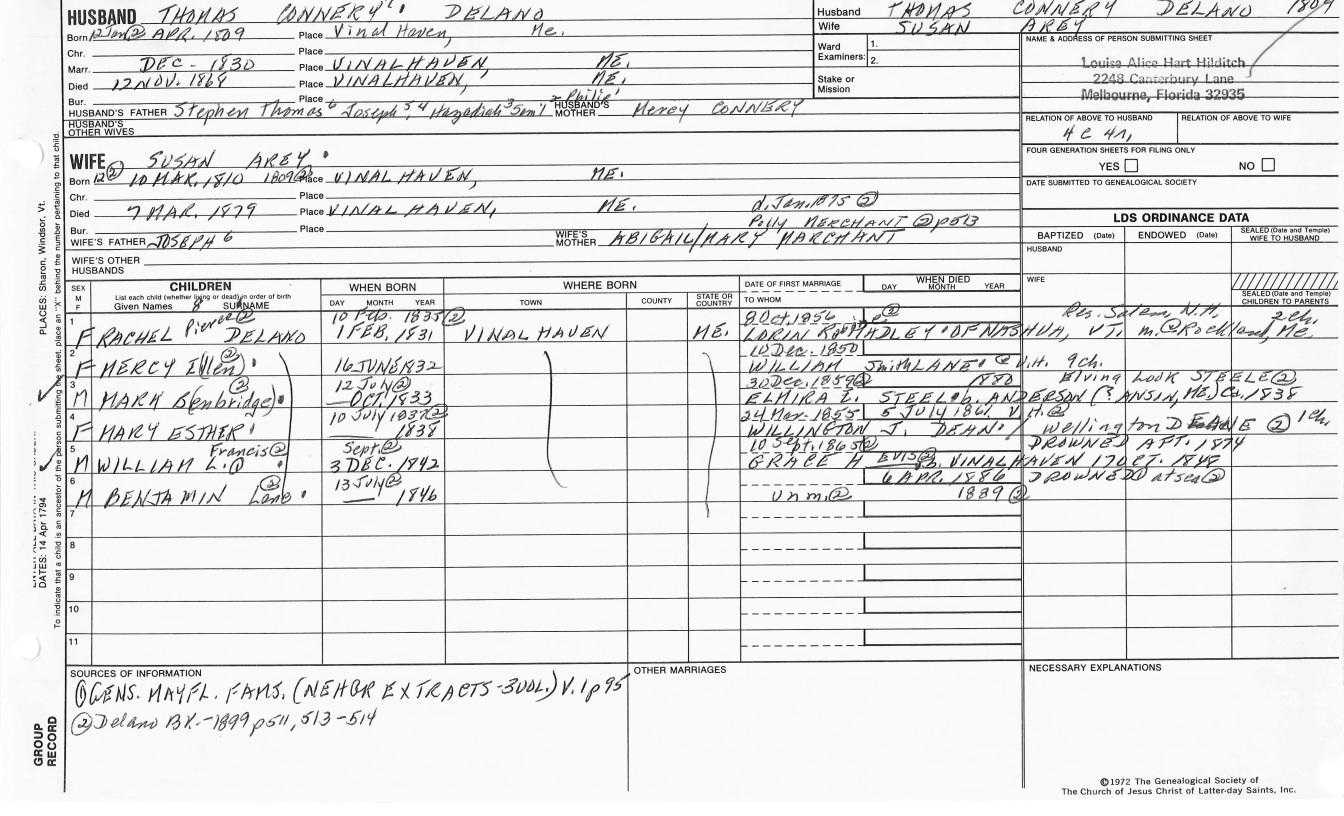 HUSBAND THOMAS CONNERY DELANO
Born 12 Jan ② APR. 1809 Place Vinal Haven, Me.
Chr. Place
Marr. DEC - 1830 Place VINALHAVEN, ME.
Died 12 NOV. 1868 Place VINALHAVEN, ME.
Bur. Place
2 Philip1
HUSBAND'S FATHER Stephen Thomas 6 Joseph 5, 4 Hazadiah 3 Sam'l HUSBAND'S MOTHER Mercy CONNERY
HUSBAND'S OTHER WIVES
Husband THOMAS CONNERY DELANO 1809
Wife SUSAN AREY
Ward Examiners: 1.
2.
Stake or Mission
NAME & ADDRESS OF PERSON SUBMITTING SHEET
Louise Alice Hart Hilditch
2248 Canterbury Lane
Melbourne, Florida 32935
RELATION OF ABOVE TO HUSBAND RELATION OF ABOVE TO WIFE
4 C 4 r,
FOUR GENERATION SHEETS FOR FILING ONLY
YES NO
DATE SUBMITTED TO GENEALOGICAL SOCIETY
WIFE SUSAN AREY
Born 12② 10 MAR. 1810 1809② Place VINALHAVEN, ME.
Chr. Place
d. Jan. 1875 ②
Died 7 MAR. 1879 Place VINALHAVEN, ME.
Polly MERCHANT ② p 513
Bur. Place
WIFE'S FATHER JOSEPH 6 WIFE'S MOTHER ABIGAIL/MARY MARCHANT
WIFE'S OTHER HUSBANDS
LDS ORDINANCE DATA
BAPTIZED (Date) ENDOWED (Date) SEALED (Date and Temple) WIFE TO HUSBAND
HUSBAND
WIFE
SEALED (Date and Temple) CHILDREN TO PARENTS
SEX M F CHILDREN WHEN BORN WHERE BORN DATE OF FIRST MARRIAGE WHEN DIED
List each child (whether living or dead) in order of birth
Given Names 8 SURNAME DAY MONTH YEAR TOWN COUNTY STATE OR COUNTRY TO WHOM DAY MONTH YEAR
Pierce② 10 Feb. 1835② 9 Oct. 1856 ② Res. Salem, N.H. 2 ch.
1 F RACHEL DELANO 1 FEB. 1831 VINALHAVEN ME. LORIN HADLEY OF NASHUA, VT. m. @ Rockland, Me.
② 10 Dec. 1850
2 F MERCY Ellen 16 JUNE 1832 WILLIAM Smith LANE V.H. 9 ch.
② 12 July② 30 Dec. 1859② 1880 Elving Look STEELE②
3 M MARK Benbridge OCT. 1833 ELMIRA L. STEELE b. ANDERSON (? ANSIN, ME.) Ca. 1838
10 July 1837② 24 Mar. 1855 5 July 1861 V.H.②
4 F MARY ESTHER 1838 WILLINGTON J. DEAN Wellington DEANE ② 1 ch.
Francis② Sept② 10 Sept. 1865② DROWNED AFT. 1874
5 M WILLIAM L.① 3 DEC. 1842 GRACE H EVIS② b. VINALHAVEN 17 OCT. 1848
② 13 July② 6 APR. 1886 DROWNED① at sea②
6 M BENJAMIN Lane 1846 Unm.② 1889 ②
7
8
9
10
11
SOURCES OF INFORMATION
① GENS. MAYFL. FAMS. (NEHGR EXTRACTS-3VOL.) V. 1 p 95
② Delano BK.-1899 p 511, 513-514
OTHER MARRIAGES
NECESSARY EXPLANATIONS
©1972 The Genealogical Society of
The Church of Jesus Christ of Latter-day Saints, Inc.
PLACES: Sharon, Windsor, Vt.
DATES: 14 Apr 1794
To indicate that a child is an ancestor of the person submitting the sheet, place an "X" behind the number pertaining to that child.
GROUP RECORD